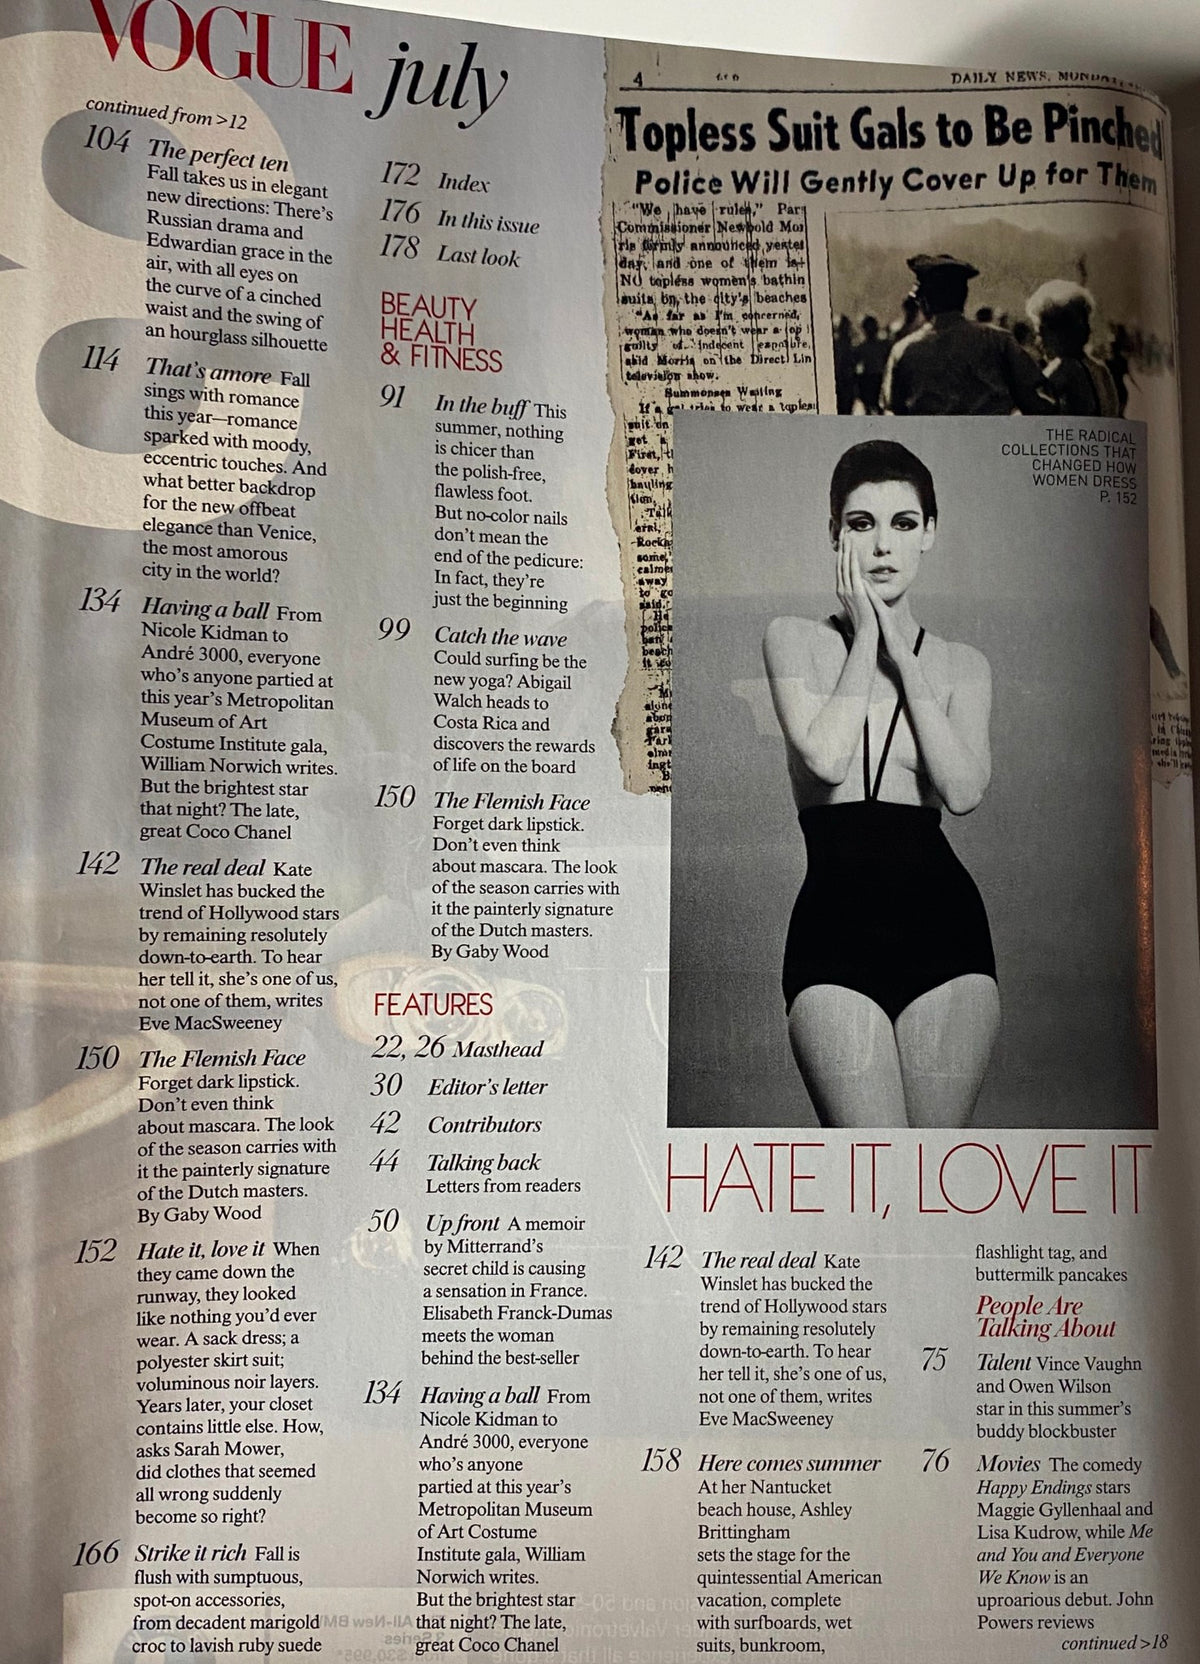 VOGUE july
continued from >12
104 The perfect ten
Fall takes us in elegant
new directions: There's
Russian drama and
Edwardian grace in the
air, with all eyes on
the curve of a cinched
waist and the swing of
an hourglass silhouette
114 That's amore Fall
sings with romance
this year—romance
sparked with moody,
eccentric touches. And
what better backdrop
for the new offbeat
elegance than Venice,
the most amorous
city in the world?
134 Having a ball From
Nicole Kidman to
André 3000, everyone
who's anyone partied at
this year's Metropolitan
Museum of Art
Costume Institute gala,
William Norwich writes.
But the brightest star
that night? The late,
great Coco Chanel
142 The real deal Kate
Winslet has bucked the
trend of Hollywood stars
by remaining resolutely
down-to-earth. To hear
her tell it, she's one of us,
not one of them, writes
Eve MacSweeney
150 The Flemish Face
Forget dark lipstick.
Don't even think
about mascara. The look
of the season carries with
it the painterly signature
of the Dutch masters.
By Gaby Wood
152 Hate it, love it When
they came down the
runway, they looked
like nothing you'd ever
wear. A sack dress; a
polyester skirt suit;
voluminous noir layers.
Years later, your closet
contains little else. How,
asks Sarah Mower,
did clothes that seemed
all wrong suddenly
become so right?
166 Strike it rich Fall is
flush with sumptuous,
spot-on accessories,
from decadent marigold
croc to lavish ruby suede
172 Index
176 In this issue
178 Last look
BEAUTY
HEALTH
& FITNESS
91 In the buff This
summer, nothing
is chicer than
the polish-free,
flawless foot.
But no-color nails
don't mean the
end of the pedicure:
In fact, they're
just the beginning
99 Catch the wave
Could surfing be the
new yoga? Abigail
Walch heads to
Costa Rica and
discovers the rewards
of life on the board
150 The Flemish Face
Forget dark lipstick.
Don't even think
about mascara. The look
of the season carries with
it the painterly signature
of the Dutch masters.
By Gaby Wood
FEATURES
22, 26 Masthead
30 Editor's letter
42 Contributors
44 Talking back
Letters from readers
50 Up front A memoir
by Mitterrand's
secret child is causing
a sensation in France.
Elisabeth Franck-Dumas
meets the woman
behind the best-seller
134 Having a ball From
Nicole Kidman to
André 3000, everyone
who's anyone
partied at this year's
Metropolitan Museum
of Art Costume
Institute gala, William
Norwich writes.
But the brightest star
that night? The late,
great Coco Chanel
4 DAILY NEWS,
Topless Suit Gals to Be Pinched
Police Will Gently Cover Up for Them
"We have rules," Par
Commissioner Newbold Mor
ris firmly announced yester
day, and one of them is
NO topless women's bathin
suits on the city's beaches
"As far as I'm concerned,
woman who doesn't wear a top
guilty of indecent exposure,
said Morris on the Direct Lin
television show.
Summonses Waiting
If a gal tries to wear a topless
suit on
THE RADICAL
COLLECTIONS THAT
CHANGED HOW
WOMEN DRESS
P. 152
HATE IT, LOVE IT
142 The real deal Kate
Winslet has bucked the
trend of Hollywood stars
by remaining resolutely
down-to-earth. To hear
her tell it, she's one of us,
not one of them, writes
Eve MacSweeney
158 Here comes summer
At her Nantucket
beach house, Ashley
Brittingham
sets the stage for the
quintessential American
vacation, complete
with surfboards, wet
suits, bunkroom,
flashlight tag, and
buttermilk pancakes
People Are
Talking About
75 Talent Vince Vaughn
and Owen Wilson
star in this summer's
buddy blockbuster
76 Movies The comedy
Happy Endings stars
Maggie Gyllenhaal and
Lisa Kudrow, while Me
and You and Everyone
We Know is an
uproarious debut. John
Powers reviews
continued >18